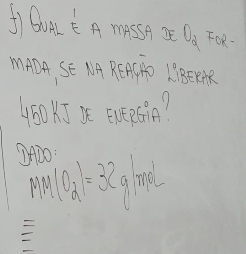 f) QUAL É A MASSA DE O2 FOR-
MADA, SE NA REAÇÃO LIBERAR
450 KJ DE ENERGIA?
DADO:
MM(O2) = 32 g/mol